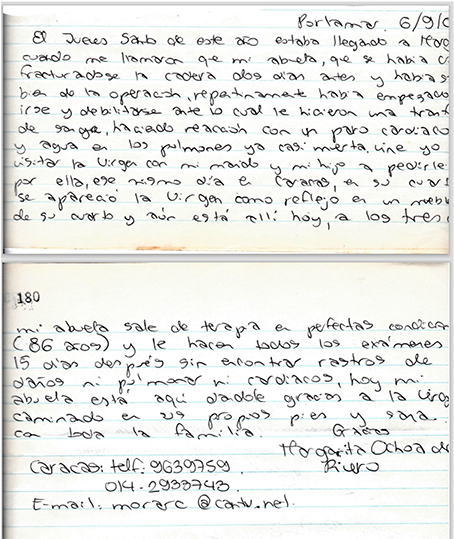 Porlamar 6/9/0
El Jueves Santo de este año estaba llegando a Marg
cuando me llamaron que mi abuela, que se había c
fracturadose la cadera dos días antes y había s
bien de la operación, repentinamente había empezado
irse y debilitarse ante lo cual le hicieron una tranf
de sangre, haciendo reacción con un paro cardiaco
y agua en los pulmones ya casi muerta, vine yo
visitar la Virgen con mi marido y mi hijo a pedirle
por ella, ese mismo día en Caracas, en su cuart
se apareció la Virgen como reflejo en un mueb
de su cuarto y aún está allí hoy, a los tres
180
mi abuela sale de terapia en perfectas condicion
(86 años) y le hacen todos los exámenes
15 días después sin encontrar rastros de
daños ni pulmonar ni cardiacos, hoy mi
abuela está aquí dandole gracias a la Virg
caminado en sus propios pies y sana.
con toda la familia. Gracias
Margarita Ochoa de
Rivero
Caracas: telf: 9639759
014-2933743
E-mail: morarc @cantv.net